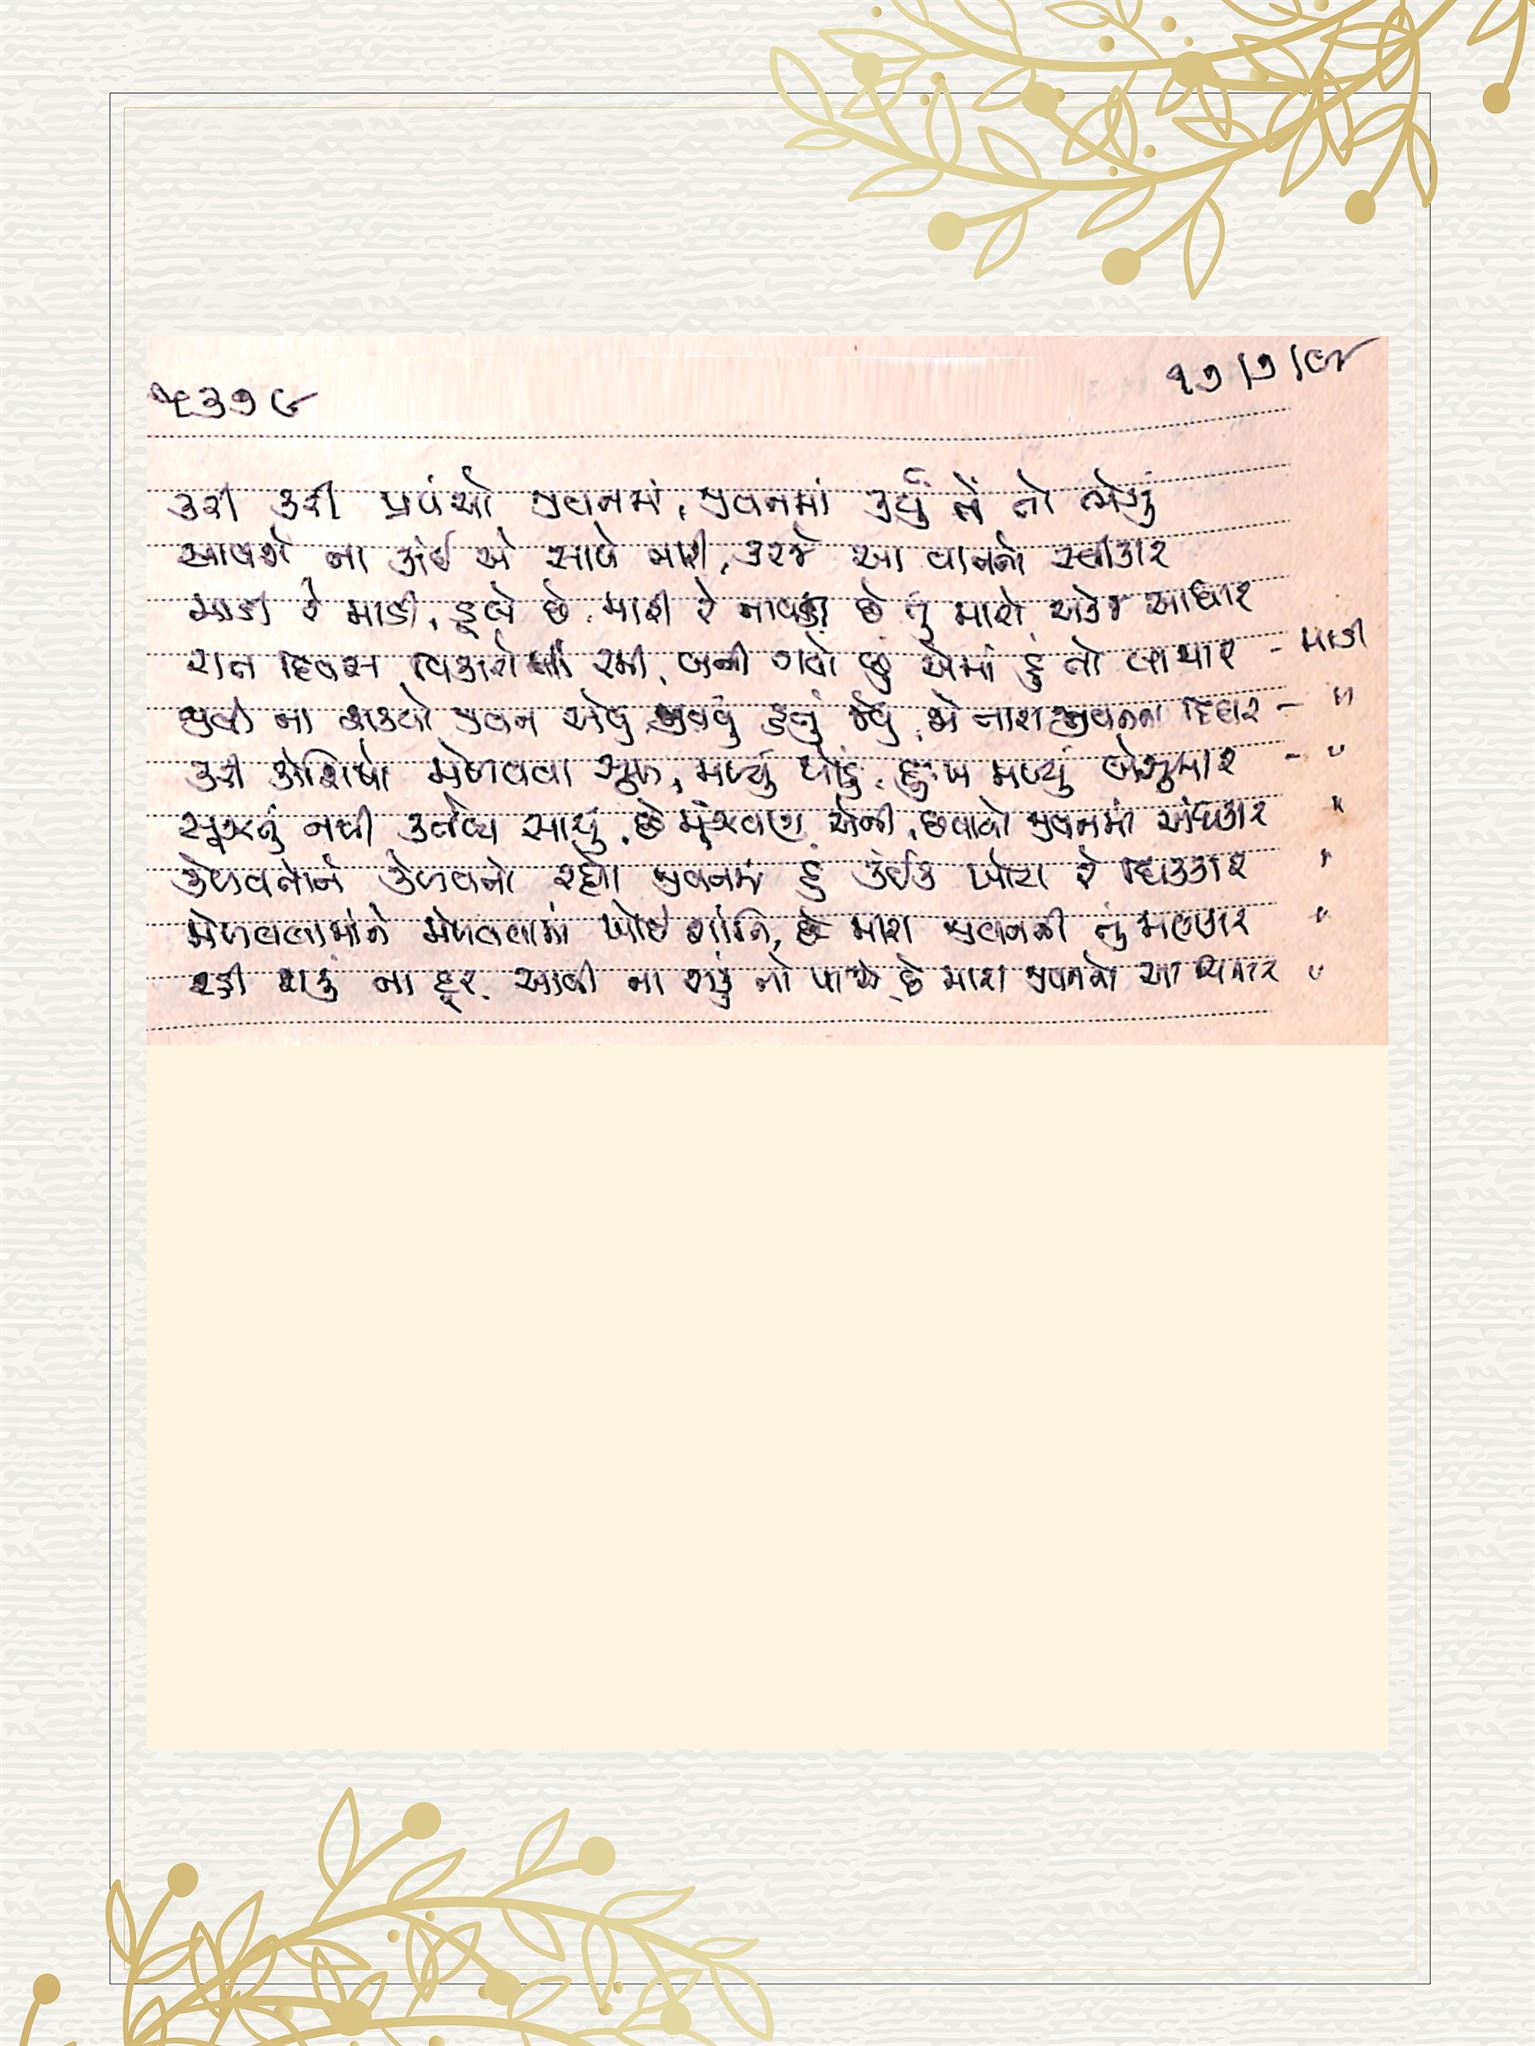 ૧૩૭૯
૧૭/૭/૮૮
કરી કરી પ્રપંચો જીવનમાં, જીવનમાં કર્યું તેં તો ભેગું
આવશે ના કાંઈ એ સાથે મારી, કરજે આ વાતનો સ્વીકાર
માડી રે માડી, ડૂબે છે મારી રે નાવડી છે તું મારો એકજ આધાર
રાત દિવસ વિકારોમાં રમી, બની ગયો છું એમાં હું તો લાચાર - માડી
જીવી ના શક્યો જીવન એવું જીવવું હતું જેવું, મારા જીવનના - "
કરી કોશિષો મેળવવા સુખ, મળ્યું થોડું, દુઃખ મળ્યું બેશુમાર - "
સૂઝતું નથી કર્તવ્ય સાચું, છે મૂંઝવણ એની, છવાયો જીવનમાં અંધકાર "
કેળવતોને કેળવતો રહ્યો જીવનમાં હું કંઈક ખોટા રે ધિક્કાર "
મેળવવામાંને મેળવવામાં ખોઈ શાંતિ, છે મારા જીવનની તું મદદગાર "
રહી શકું ના દૂર, આવી ના શકું તો પાસે, છે મારા જીવનનો આ ચિતાર "